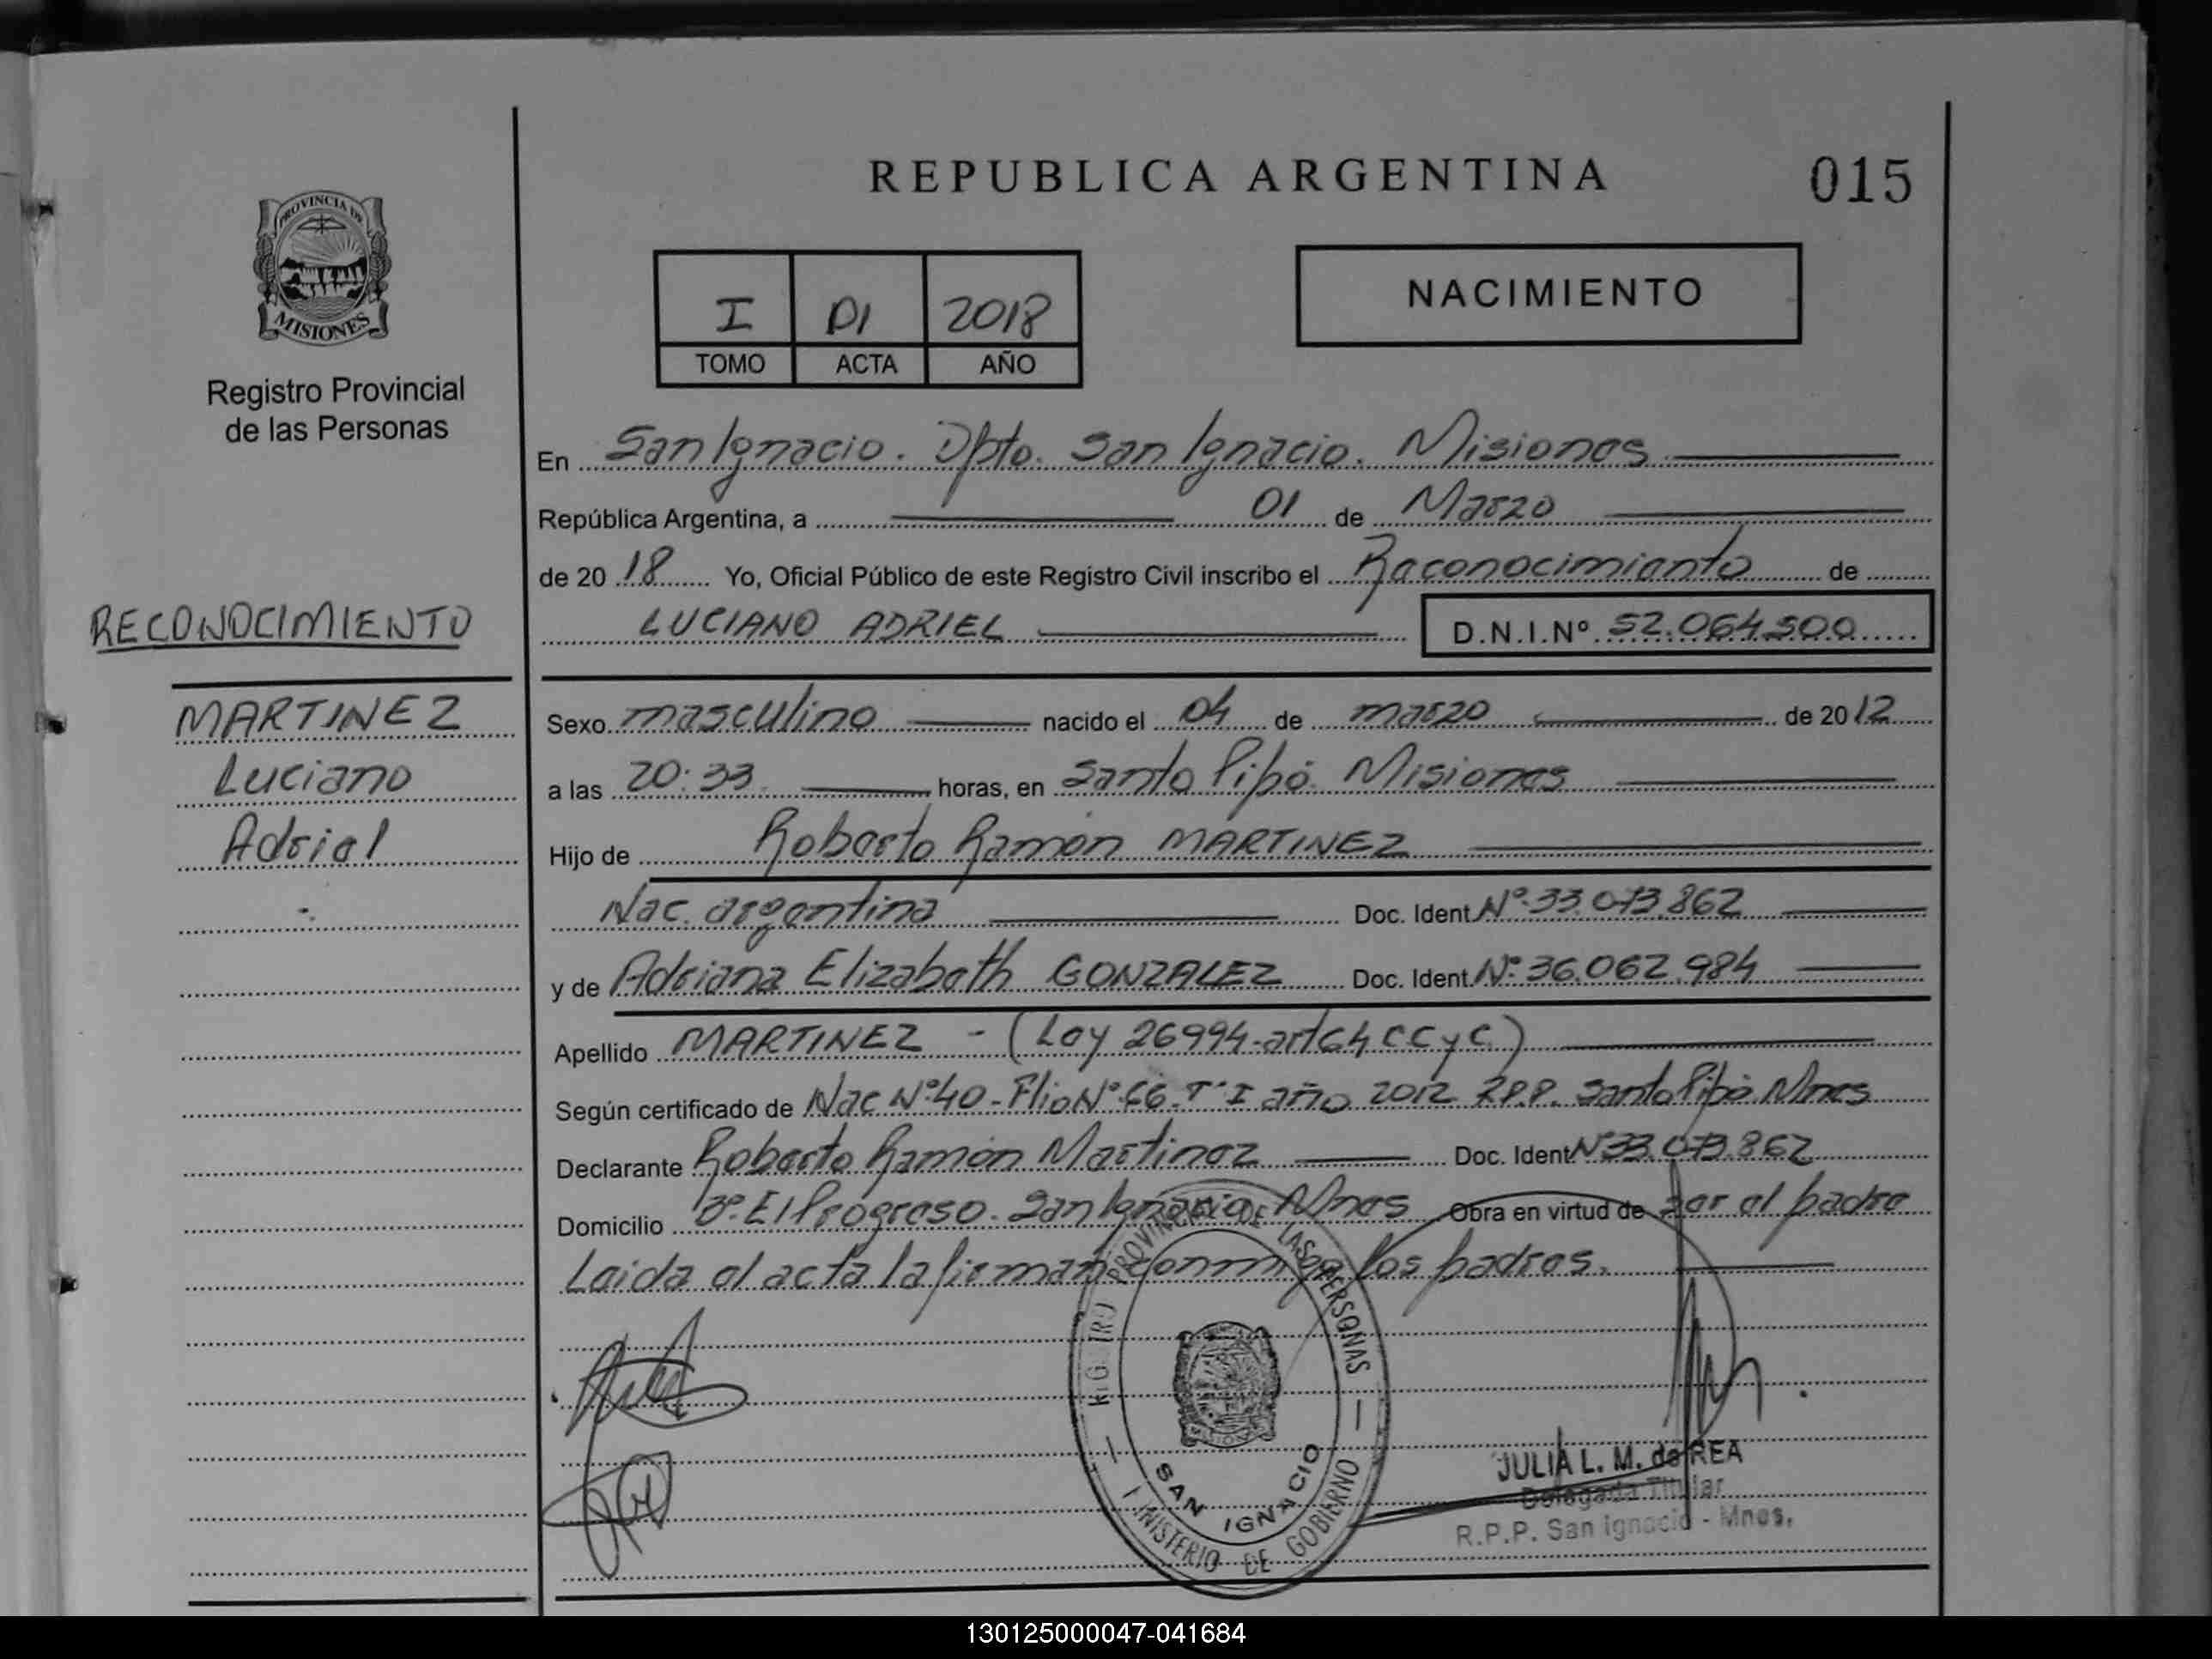 REPUBLICA ARGENTINA
015
PROVINCIA DE
MISIONES
Registro Provincial
de las Personas
I 01 2018
TOMO ACTA AÑO
NACIMIENTO
En San Ignacio. Dpto. San Ignacio. Misiones
República Argentina, a 01 de Marzo
de 20 18 Yo, Oficial Público de este Registro Civil inscribo el Reconocimiento de
LUCIANO ADRIEL D.N.I.Nº 52.064.500
RECONOCIMIENTO
MARTINEZ
Luciano
Adriel
Sexo masculino nacido el 04 de marzo de 20 12
a las 20:33 horas, en Santo Pipó. Misiones
Hijo de Roberto Ramón MARTINEZ
Nac. argentina Doc. Ident. Nº 33.073.862
y de Adriana Elizabeth GONZALEZ Doc. Ident. Nº 36.062.984
Apellido MARTINEZ - (Ley 26994-art64 CCyC)
Según certificado de Nac Nº 40 - Flio Nº 66 Tº I año 2012 R.P.P. Santo Pipó Mnes
Declarante Roberto Ramón Martinez Doc. Ident. Nº 33.073.862
Domicilio Bº. El Progreso. San Ignacio Mnes Obra en virtud de ser el padre
Leida el acta la firman conmigo los padres.
REGISTRO PROVINCIAL DE LAS PERSONAS
MINISTERIO DE GOBIERNO
MISIONES
SAN IGNACIO
JULIA L. M. de REA
Delegada Titular
R.P.P. San Ignacio - Mnes.
130125000047-041684